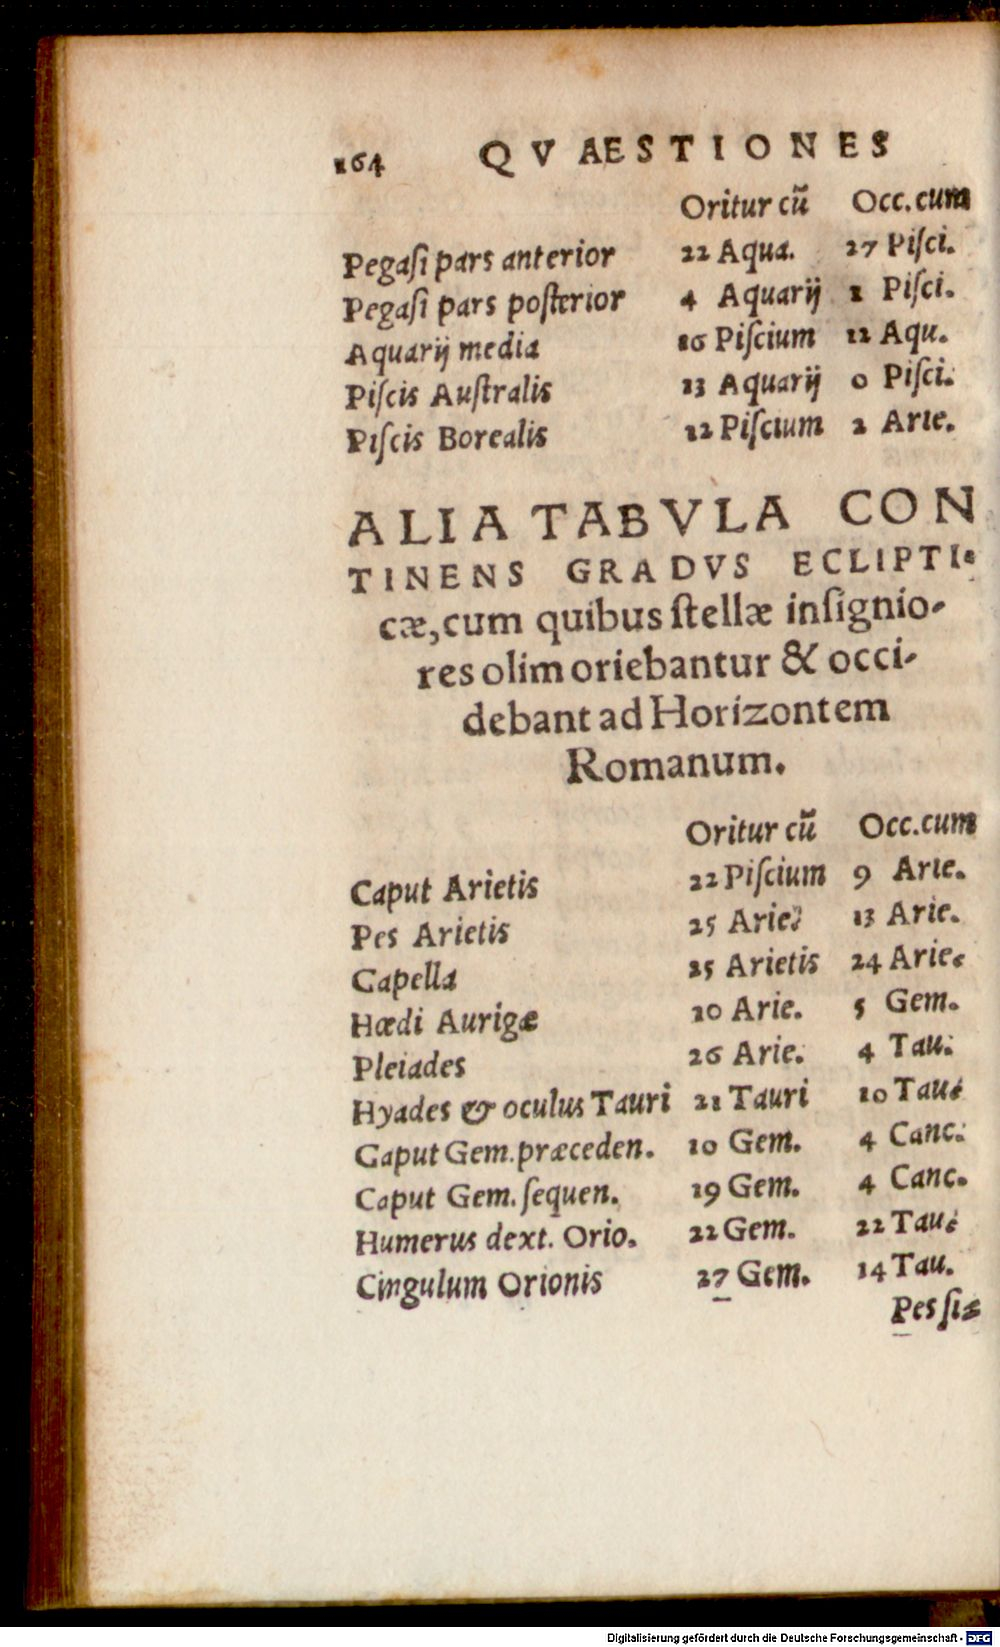 164 QVAESTIONES
Oritur cũ Occ. cum
Pegaſi pars anterior 22 Aqua. 27 Piſci.
Pegaſi pars poſterior 4 Aquarij 1 Piſci.
Aquarij media 16 Piſcium 12 Aqu.
Piſcis Auſtralis 13 Aquarij 0 Piſci.
Piſcis Borealis 12 Piſcium 2 Arie.
ALIA TABVLA CON
TINENS GRADVS ECLIPTI-
cæ, cum quibus ſtellæ inſignio-
res olim oriebantur & occi-
debant ad Horizontem
Romanum.
Oritur cũ Occ. cum
Caput Arietis 22 Piſcium 9 Arie.
Pes Arietis 25 Arie. 13 Arie.
Capella 25 Arietis 24 Arie.
Hœdi Aurigæ 20 Arie. 5 Gem.
Pleiades 26 Arie. 4 Tau.
Hyades & oculus Tauri 21 Tauri 20 Tau.
Caput Gem. præceden. 10 Gem. 4 Canc.
Caput Gem. ſequen. 19 Gem. 4 Canc.
Humerus dext. Orio. 22 Gem. 22 Tau.
Cingulum Orionis 27 Gem. 14 Tau.
Pes ſi-
Digitalisierung gefördert durch die Deutsche Forschungsgemeinschaft - DFG